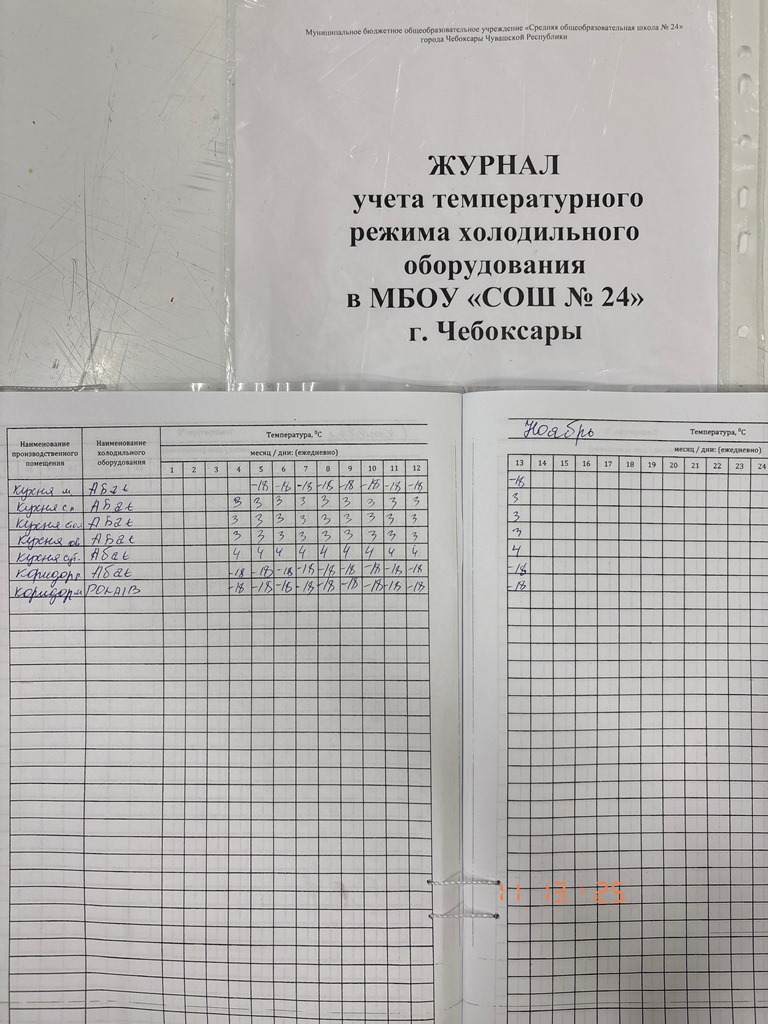 Муниципальное бюджетное общеобразовательное учреждение «Средняя общеобразовательная школа № 24»
города Чебоксары Чувашской Республики
ЖУРНАЛ
учета температурного
режима холодильного
оборудования
в МБОУ «СОШ № 24»
г. Чебоксары
Наименование производственного помещения Наименование холодильного оборудования Температура, ⁰С
месяц / дни: (ежедневно)
1 2 3 4 5 6 7 8 9 10 11 12
Ноябрь Температура, ⁰С
месяц / дни: (ежедневно)
13 14 15 16 17 18 19 20 21 22 23 24
Кухня м Абат -18 -18 -18 -18 -18 -18 -18 -18 -18
Кухня с.п Абат 3 3 3 3 3 3 3 3 3 3
Кухня Абат 3 3 3 3 3 3 3 3 3 3
Кухня Абат 3 3 3 3 3 3 3 3 3 3
Кухня сут. Абат 4 4 4 4 4 4 4 4 4 4
Коридор Абат -18 -18 -18 -18 -18 -18 -18 -18 -18 -18
Коридор м POLAIR -18 -18 -18 -18 -18 -18 -18 -18 -18 -18
11 13 - 25